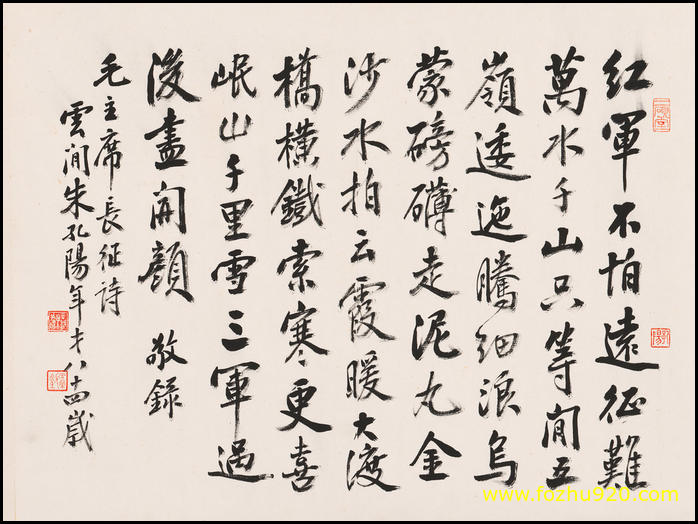 紅軍不怕遠征難
萬水千山只等閒五
嶺逶迤騰細浪烏
蒙磅礴走泥丸金
沙水拍云霞暖大渡
橋橫鐵索寒更喜
岷山千里雪三軍過
後盡開顏 敬錄
毛主席長征詩
雲閒朱孔陽年才八十四歲
www.fozhu920.com